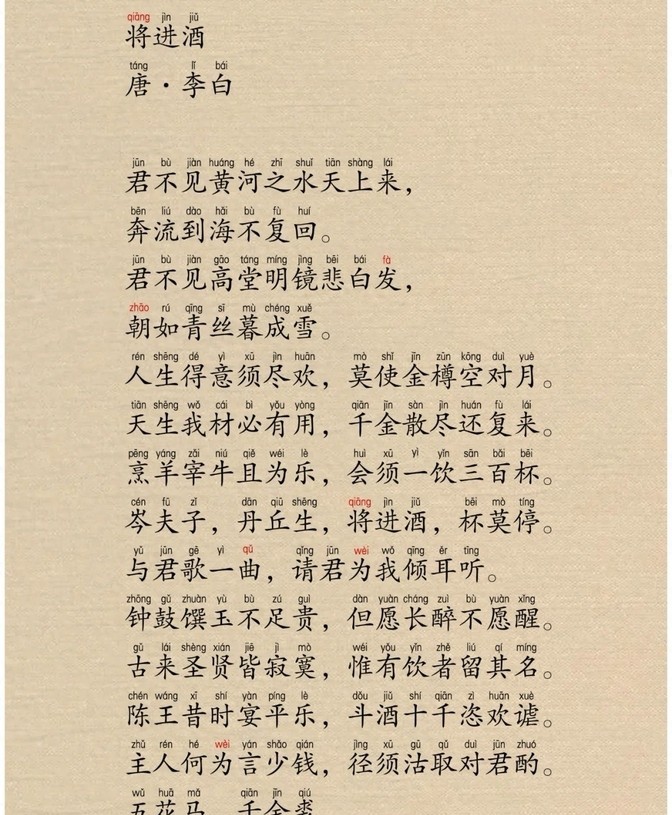 qiāng jìn jiǔ
将进酒
táng lǐ bái
唐·李白
jūn bù jiàn huáng hé zhī shuǐ tiān shàng lái
君不见黄河之水天上来，
bēn liú dào hǎi bù fù huí
奔流到海不复回。
jūn bù jiàn gāo táng míng jìng bēi bái fà
君不见高堂明镜悲白发，
zhāo rú qīng sī mù chéng xuě
朝如青丝暮成雪。
rén shēng dé yì xū jìn huān mò shǐ jīn zūn kōng duì yuè
人生得意须尽欢，莫使金樽空对月。
tiān shēng wǒ cái bì yǒu yòng qiān jīn sàn jìn huán fù lái
天生我材必有用，千金散尽还复来。
pēng yáng zǎi niú qiě wéi lè huì xū yì yǐn sān bǎi bēi
烹羊宰牛且为乐，会须一饮三百杯。
cén fū zǐ dān qiū shēng qiāng jìn jiǔ bēi mò tíng
岑夫子，丹丘生，将进酒，杯莫停。
yǔ jūn gē yì qǔ qǐng jūn wèi wǒ qīng ěr tīng
与君歌一曲，请君为我倾耳听。
zhōng gǔ zhuàn yù bù zú guì dàn yuàn cháng zuì bù yuàn xǐng
钟鼓馔玉不足贵，但愿长醉不愿醒。
gǔ lái shèng xián jiē jì mò wéi yǒu yǐn zhě liú qí míng
古来圣贤皆寂寞，惟有饮者留其名。
chén wáng xī shí yàn píng lè dǒu jiǔ shí qiān zì huān xuè
陈王昔时宴平乐，斗酒十千恣欢谑。
zhǔ rén hé wèi yán shǎo qián jìng xū gū qǔ duì jūn zhuó
主人何为言少钱，径须沽取对君酌。
wǔ huā mǎ qiān jīn qiú
五花马，千金裘